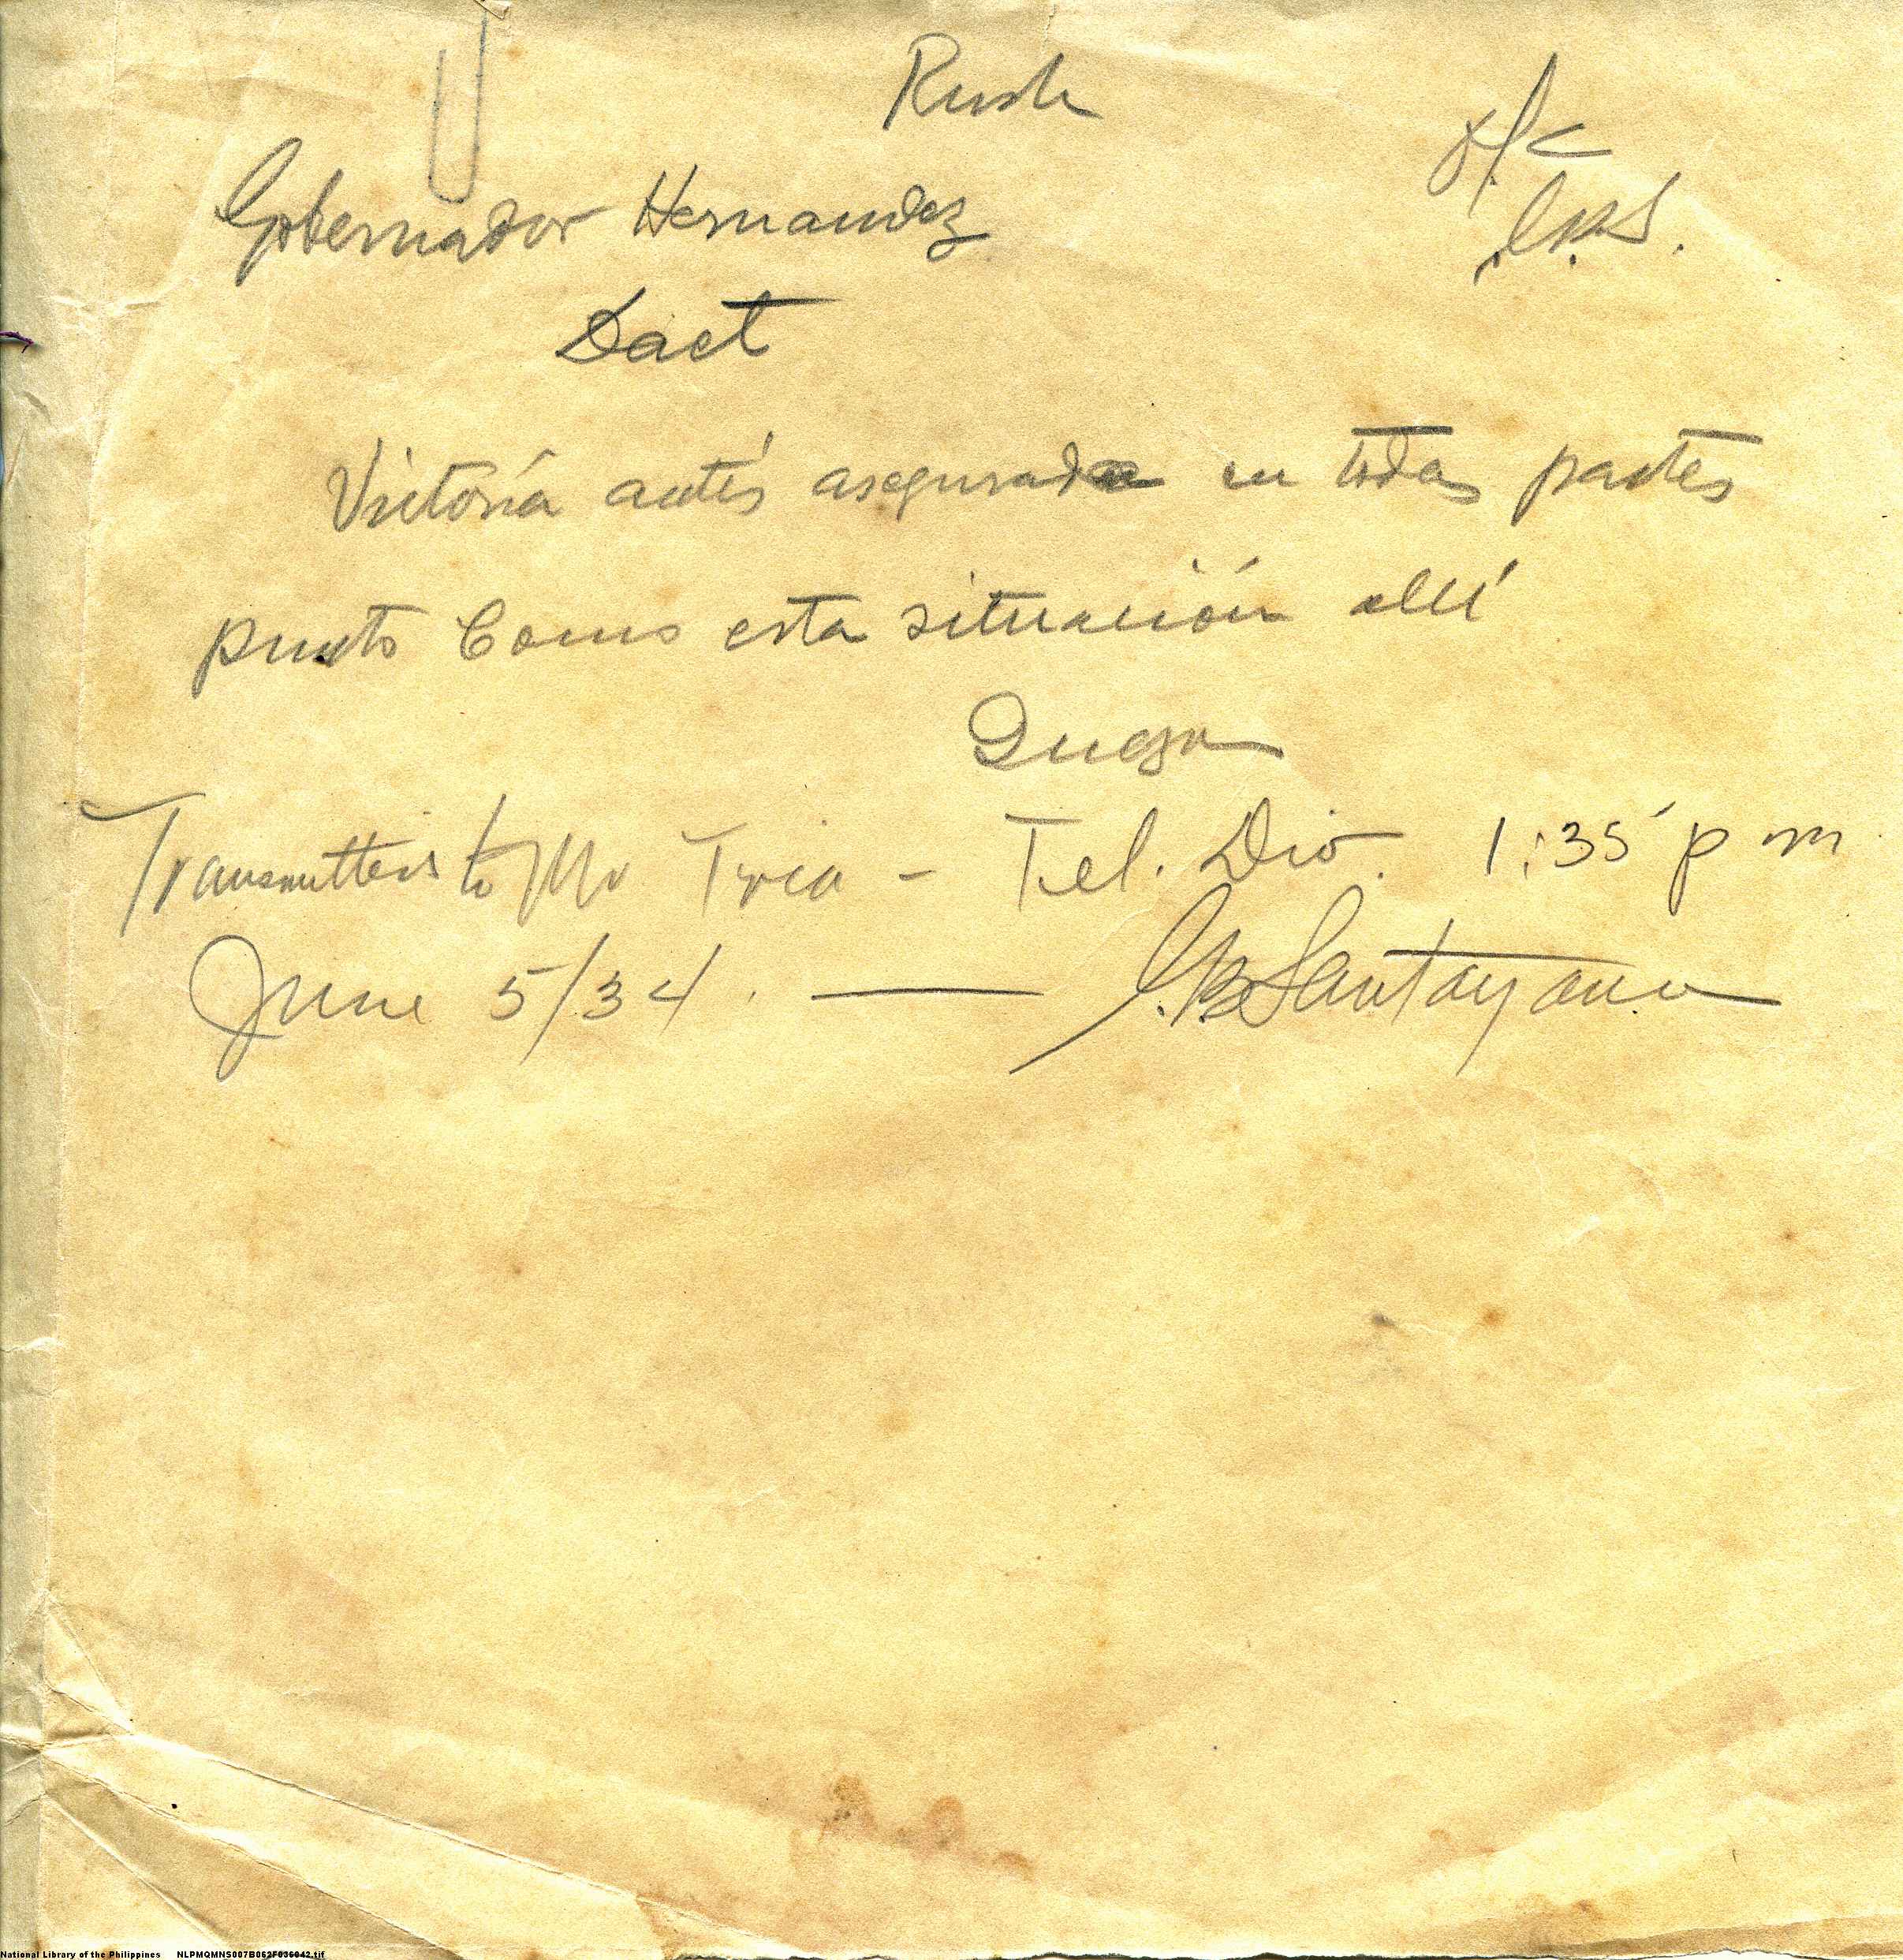 Rush
Gobernador Hernandez
Daet
Victoria antis asegurada en todas partes
punto Como esta situación allí
Quezon
Transmitted to Mr Tria - Tel. Div. 1:35 p m
June 5/34. — G.B. Santayana
National Library of the Philippines NLPMQMNS007B062F036042.tif